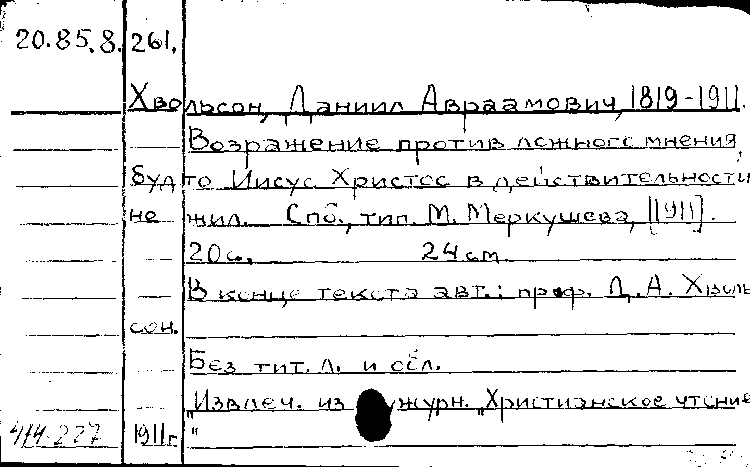 20.85.8. 261.
Хвольсон, Даниил Авраамович, 1819-1911.
Возражение против ложного мнения,
будто Иисус Христос в действительности
не жил. Спб., тип. М. Меркушева, [1911].
20с. 24см.
В конце текста авт.: проф. Д. А. Хволь
сон.
Без тит. л. и обл.
"Извлеч. из журн. "Христианское чтение
414-227 1911г. "